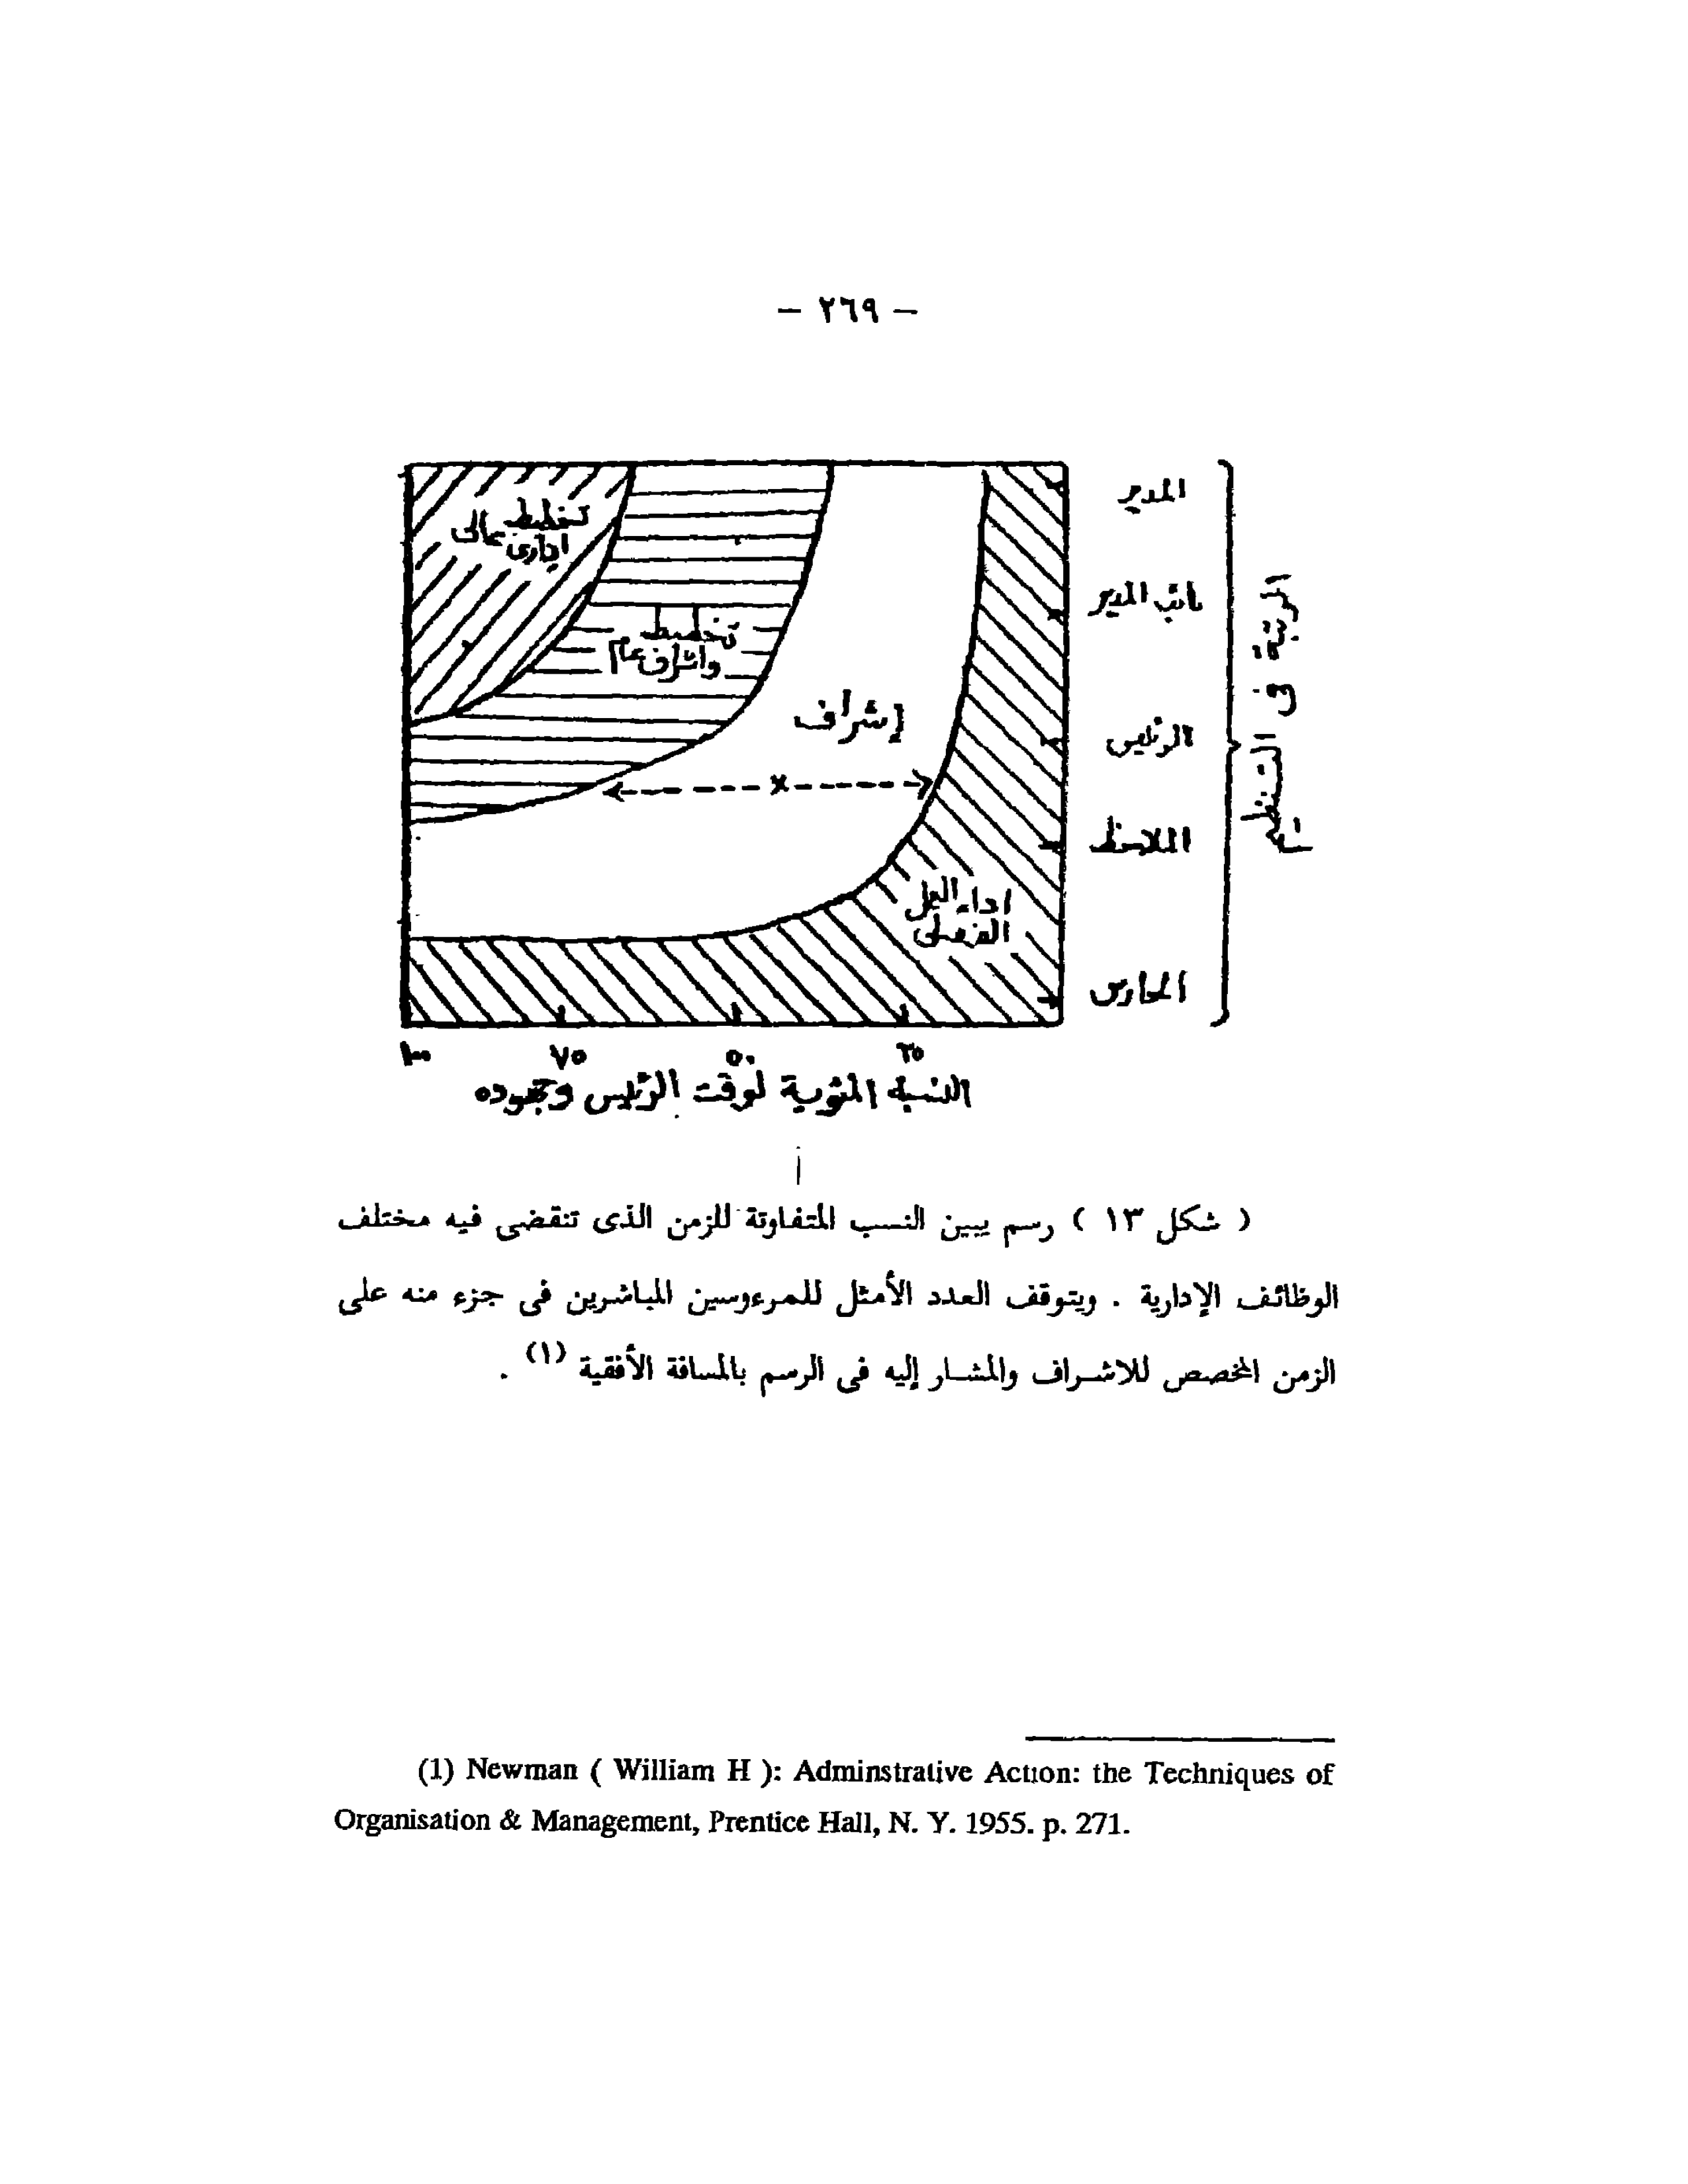 – ٢٦٩ –
المدير
نائب المدير
الرئيس
الملاحظ
الحارس
المرتبة فى التنظيم
تخطيط
إدارى عالى
تخطيط
واشراف عام
إشراف
x
اداء العمل
الفعلى
١٠٠ ٧٥ ٥٠ ٢٥
النسبة المئوية لوقت الرئيس وجهوده
أ
( شكل ١٣ ) رسم يبين النسب المتفاوتة للزمن الذى تنقضى فيه مختلف
الوظائف الإدارية . ويتوقف العدد الأمثل للمرءوسين المباشرين فى جزء منه على
الزمن المخصص للاشراف والمشار إليه فى الرسم بالمسافة الأفقية (١) .
(1) Newman ( William H ): Adminstrative Action: the Techniques of
Organisation & Management, Prentice Hall, N. Y. 1955. p. 271.